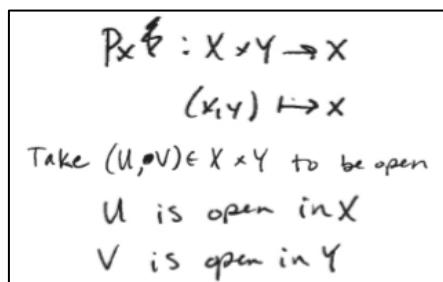 Px : X × Y → X
(x,y) ↦ x
Take (U, V) ∈ X × Y to be open
U is open in X
V is open in Y